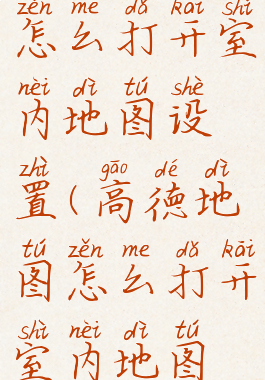 zěn me dǎ kāi shì
怎么打开室
nèi dì tú shè
内地图设
zhì gāo dé dì
置(高德地
tú zěn me dǎ kāi
图怎么打开
shì nèi dì tú
室内地图